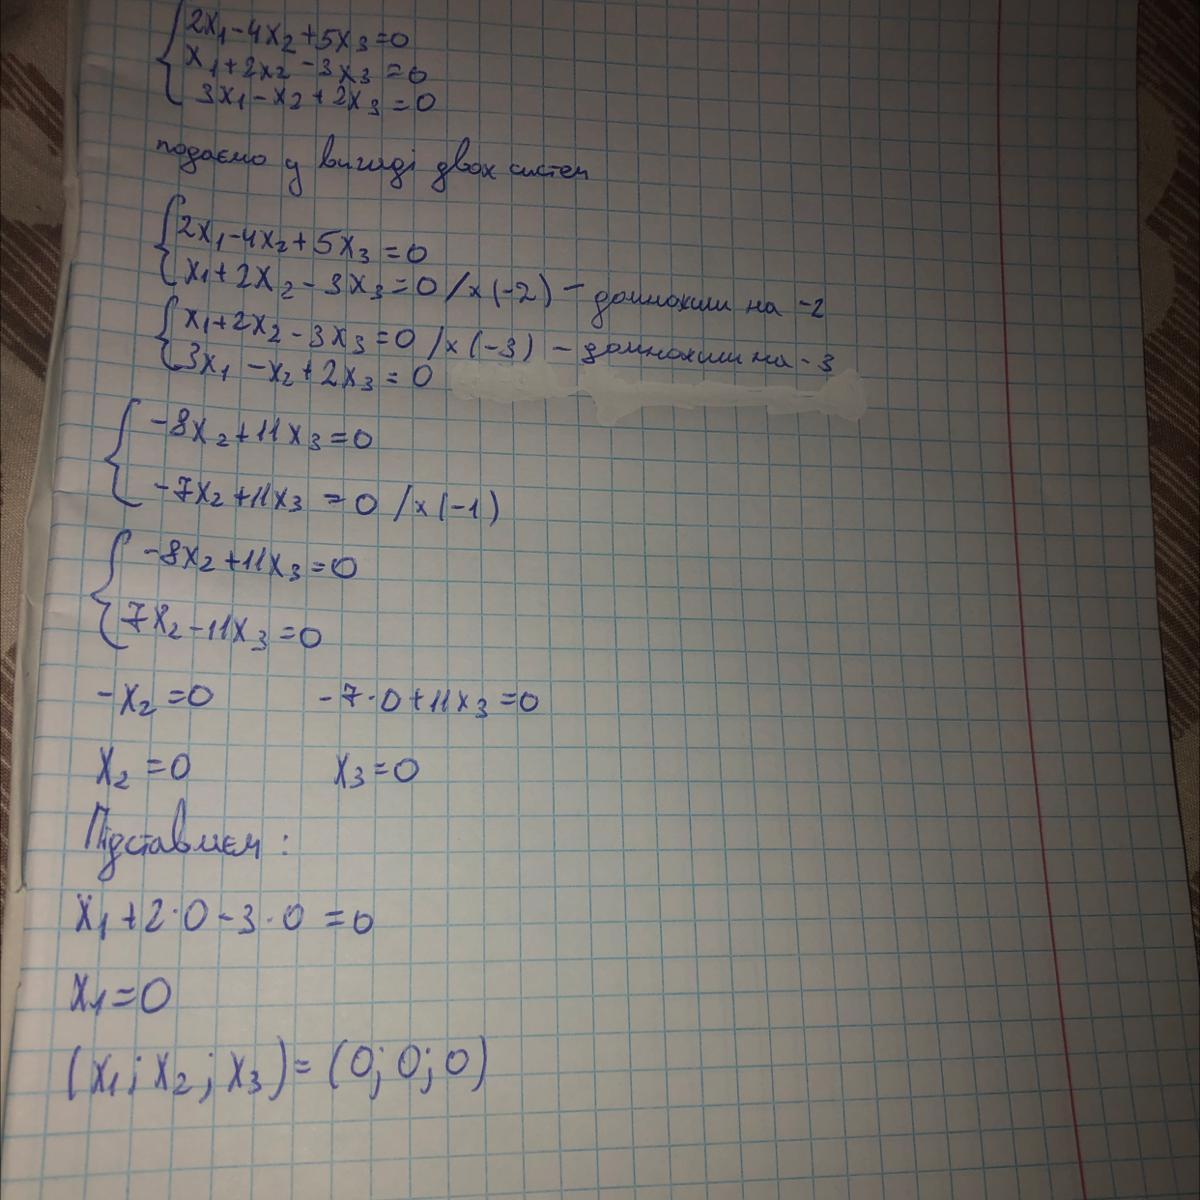 2x₁-4x₂+5x₃=0
x₁+2x₂-3x₃=0
3x₁-x₂+2x₃=0
подаємо у вигляді двох систем
2x₁-4x₂+5x₃=0
x₁+2x₂-3x₃=0 /x(-2) - домножили на -2
x₁+2x₂-3x₃=0 /x(-3) - домножили на -3
3x₁-x₂+2x₃=0
-8x₂+11x₃=0
-7x₂+11x₃=0 /x(-1)
-8x₂+11x₃=0
7x₂-11x₃=0
-x₂=0 -7·0+11x₃=0
x₂=0 x₃=0
Підставляєм:
x₁+2·0-3·0=0
x₁=0
(x₁; x₂; x₃)=(0; 0; 0)